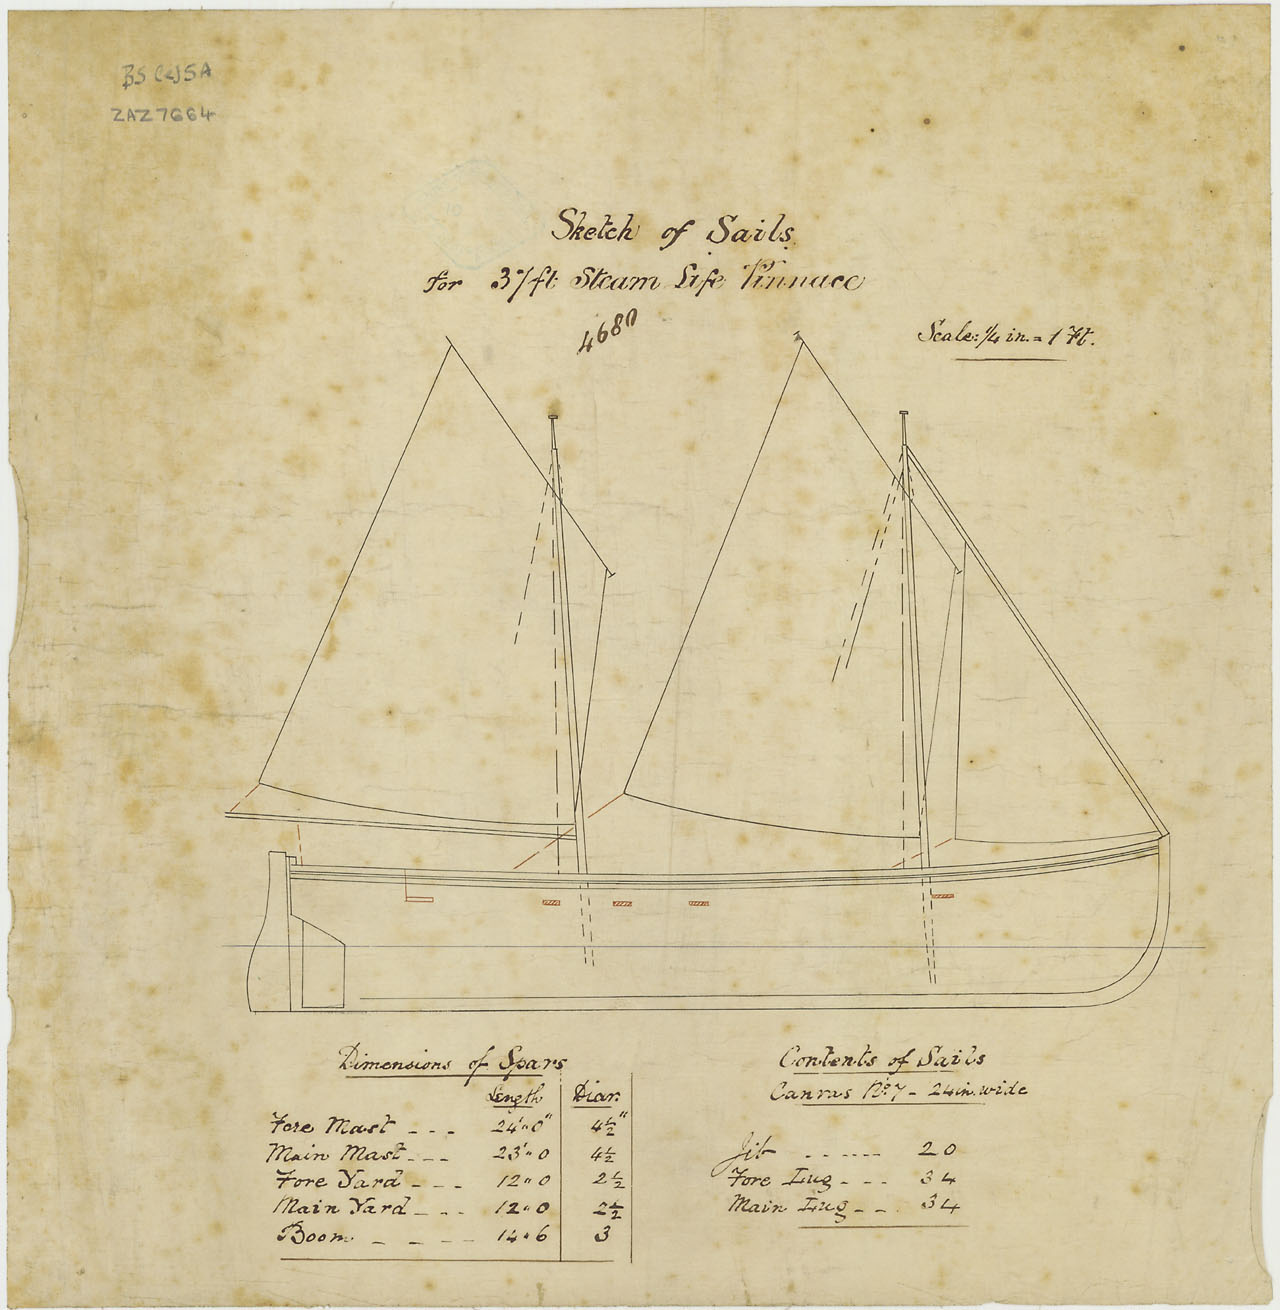 ZAZ7664
Sketch of Sails
for 37ft Steam Life Pinnace
4680
Scale: 1/4 in. = 1 Ft.
Dimensions of Spars
Length Diar.
Fore Mast - - - 24'"0" 4½"
Main Mast - - - 23'"0 4½
Fore Yard - - - 12"0 2½
Main Yard - - - 12"0 2½
Boom - - - - 14"6 3
Contents of Sails
Canvas No. 7 - 24in. wide
Jib - - - - - - 20
Fore Lug - - - 34
Main Lug - - . 34